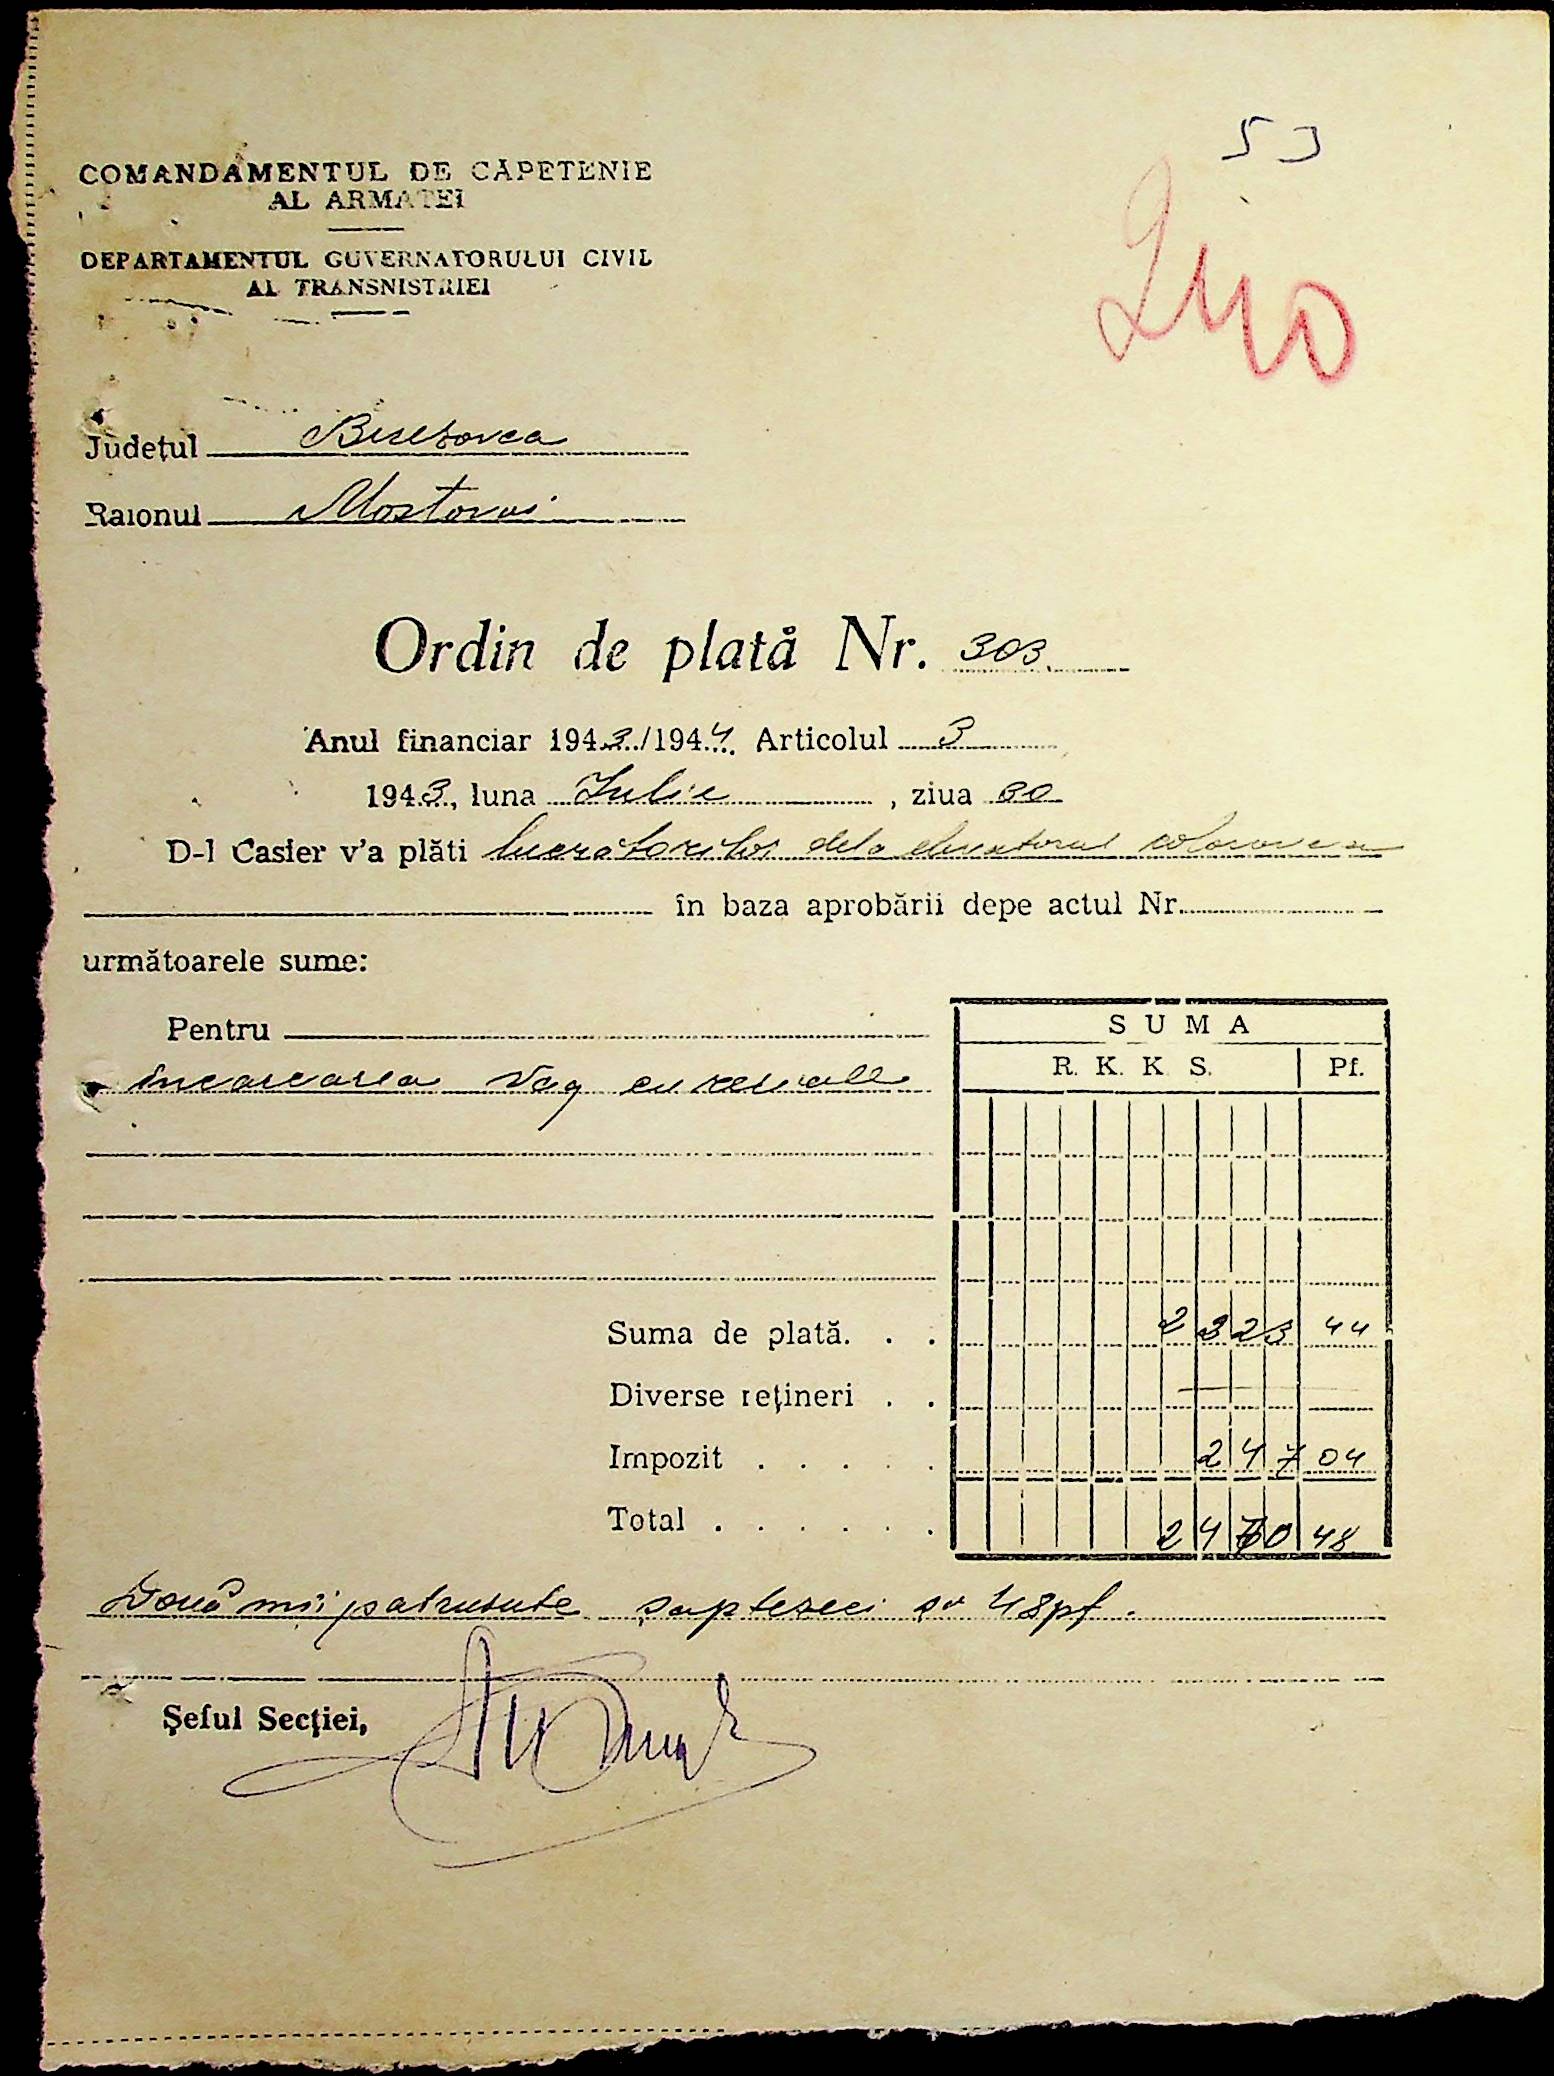 53
240
COMANDAMENTUL DE CAPETENIE
AL ARMATEI
DEPARTAMENTUL GUVERNATORULUI CIVIL
AL TRANSNISTRIEI
Județul Beresovca
Raionul Mostovoi
Ordin de plată Nr. 303
Anul financiar 1943/1944 Articolul 3
1943, luna Iulie, ziua 30
D-l Casier v'a plăti lucrătorilor dela elevatorul
în baza aprobării depe actul Nr.
următoarele sume:
Pentru
încărcarea vag cu cereale
SUMA
R. K. K. S. Pf.
Suma de plată. . . 2323 44
Diverse rețineri . . —
Impozit . . . . . 247 04
Total . . . . . . 2470 48
Două mii patrusute șaptezeci și 48 pf.
Șeful Secției,